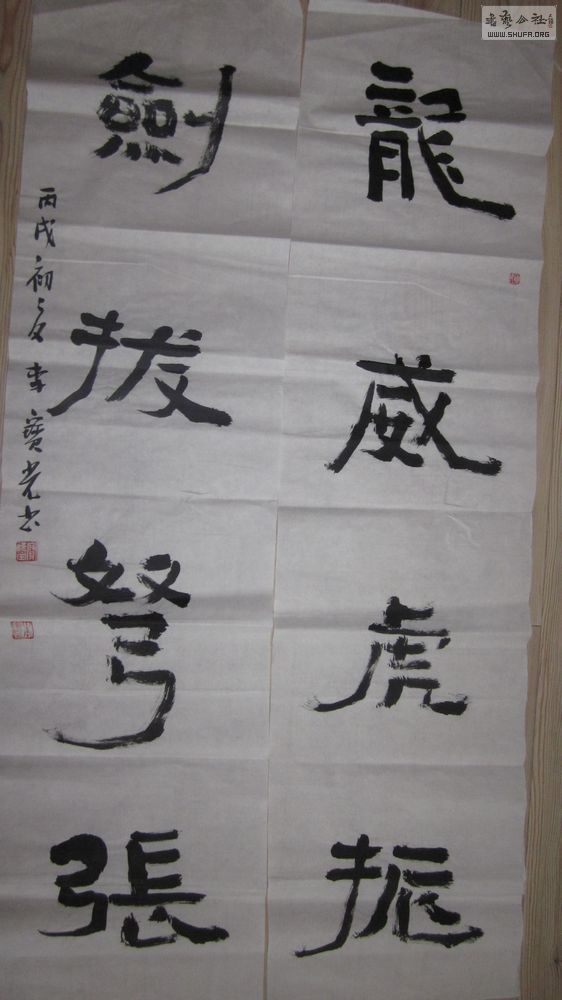 龍威虎振
劍拔弩張
丙戌初夏李寶光书
书艺公社
WWW.SHUFA.ORG